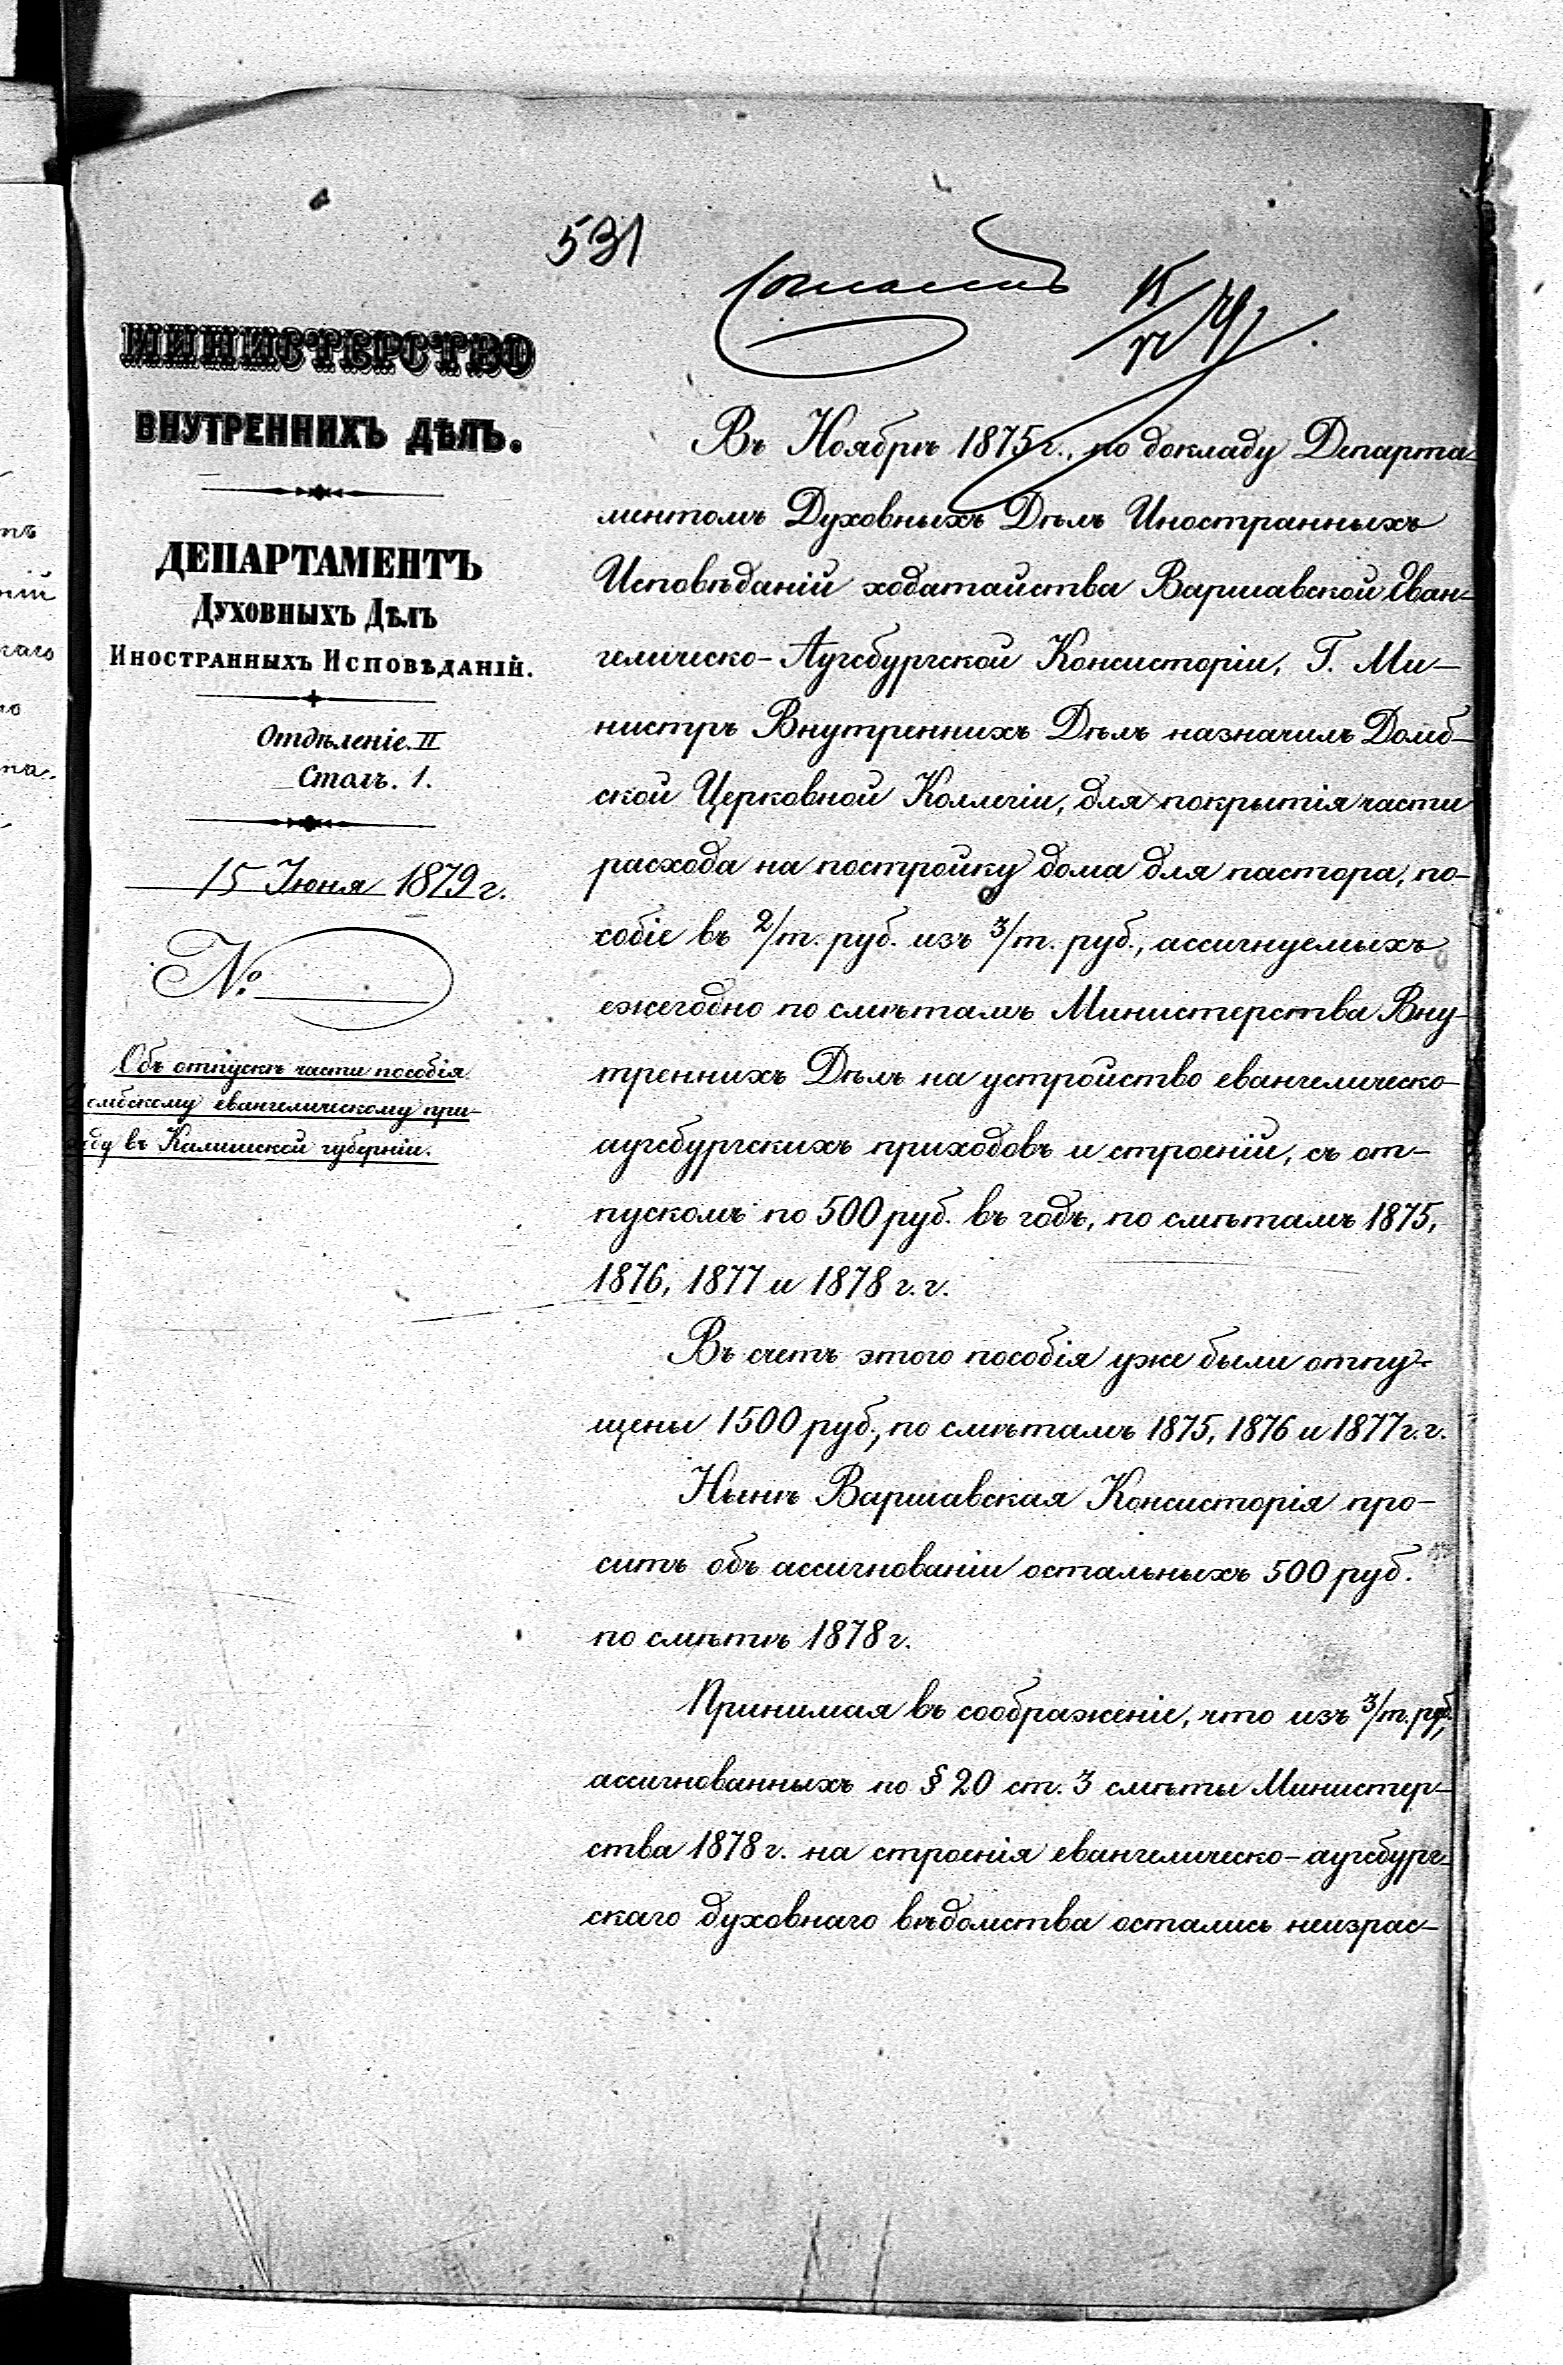 531
Согласенъ 15/VI 79.
МИНИСТЕРСТВО
ВНУТРЕННИХЪ ДѢЛЪ.
ДЕПАРТАМЕНТЪ
ДУХОВНЫХЪ ДѢЛЪ
ИНОСТРАННЫХЪ ИСПОВѢДАНІЙ.
Отдѣленіе II
Столъ. 1.
15 Іюня 1879 г.
№
Объ отпускѣ части пособія
омбскому евангелическому при-
оду въ Калишской губерніи.
Въ Ноябрѣ 1875 г., по докладу Департа
ментомъ Духовныхъ Дѣлъ Иностранныхъ
Исповѣданій ходатайства Варшавской Еван-
гелическо-Аугсбургской Консисторіи, Г. Ми-
нистръ Внутреннихъ Дѣлъ назначилъ Домб-
ской Церковной Коллегіи, для покрытія части
расхода на постройку дома для пастора, по-
собіе въ 2/т. руб. изъ 3/т. руб., ассигнуемыхъ
ежегодно по смѣтамъ Министерства Вну-
треннихъ Дѣлъ на устройство евангелическо-
аугсбургскихъ приходовъ и строеній, съ от-
пускомъ по 500 руб. въ годъ, по смѣтамъ 1875,
1876, 1877 и 1878 г. г.
Въ счетъ этого пособія уже были отпу-
щены 1500 руб., по смѣтамъ 1875, 1876 и 1877 г. г.
Нынѣ Варшавская Консисторія про-
ситъ объ ассигнованіи остальныхъ 500 руб.
по смѣтѣ 1878 г.
Принимая въ соображеніе, что изъ 3/т. руб.,
ассигнованныхъ по § 20 ст. 3 смѣты Министер-
ства 1878 г. на строенія евангелическо-аугсбург-
скаго духовнаго вѣдомства остались неизрас-